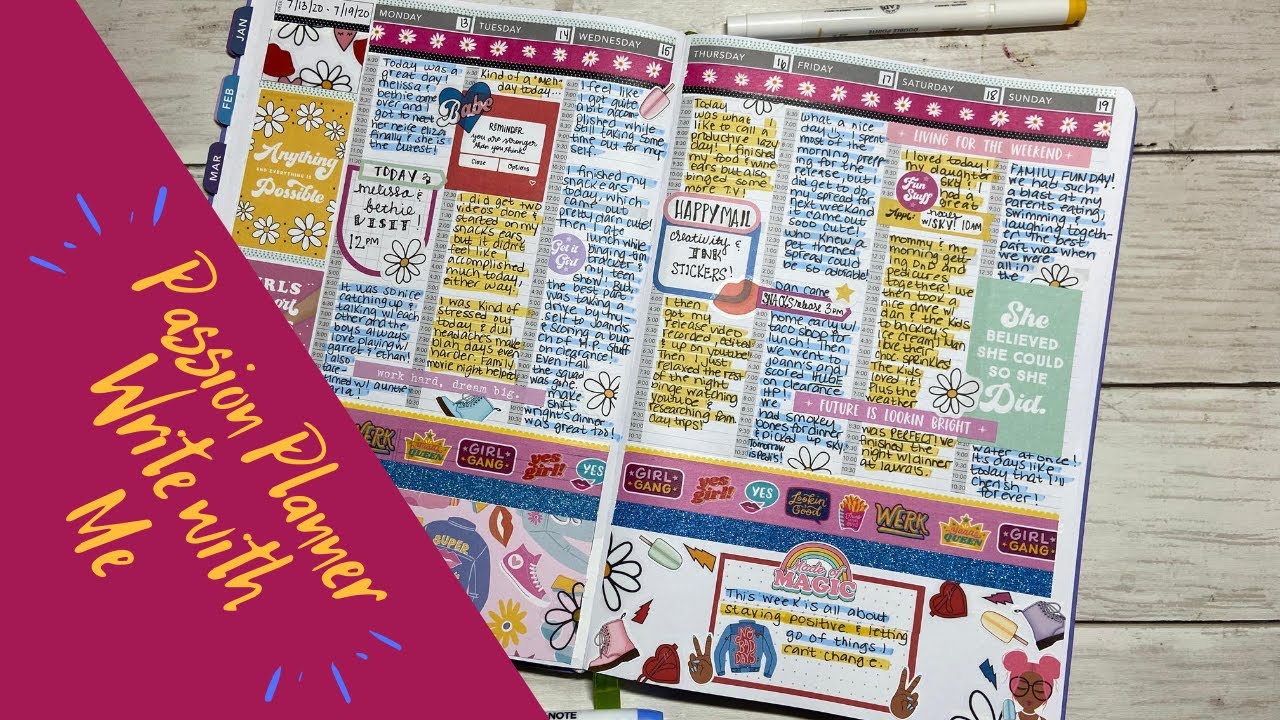 Passion Planner
Write with
Me
JAN
FEB
MAR
7/13/20 - 7/19/20
MONDAY 13
TUESDAY 14
WEDNESDAY 15
THURSDAY 16
FRIDAY 17
SATURDAY 18
SUNDAY 19
Anything
AND EVERYTHING IS
Possible
Today was a
great day!
melissa &
bethie came
over and I
got to meet
her neice eliza
finally & she is
the cutest!
TODAY
melissa &
bethie
VISIT
12 PM
It was so nice
catching up &
talking w/ each
other and the
boys always
love playing w/
garrett & ethan!
I also
Kind of a "meh"
day today...
Babe
REMINDER
you are stronger
than you think!
Close Options
I did get two
videos done &
started on my
snacks ears
but it didn't
feel like I
accomplished
much today,
either way.
I was kind of
stressed out
today & dull
headaches make
blah days even
harder. Family
movie night helped!
work hard, dream big.
I feel like
I got quite
a bit accom-
plished while
still taking some
time out for my
self.
I finished my
snack ears
which came
out
pretty cute!
Then I ate
lunch while
binging
my
Got it
Girl
the show! But
the best part
was taking a
drive by my
self to Joann's
& scoring a bunch
of H.P. stuff
on clearance!
Even tho
the salad
was gone,
make
shift
Wright's dinner
was great too!
Today
was what I
like to call a
productive lazy
day! I finished
my food & wine
ears but also
binged some
more TV!
HAPPY MAIL
creativity &
INK
STICKERS!
I then
got my
release video
recorded, edited
& on youtube!
Then I just
relaxed the rest
of the night
watching
youtube &
researching fam
day trips!
what a nice
day! I spent
most of the
morning prepp-
ing for the
release but I
did get to do
my spread for
next week and
it came out so
cute! who
knew a themed
pet spread could
be so adorable!
Dan came
SNACKS release 3PM
home early w/
taco shop for
lunch! Then
we went to
Joann's and
scored HUGE
on clearance
HP! We
had smokey
bones for dinner
& picked up sky!
Tomorrow
is pedi's!
LIVING FOR THE WEEKEND
I loved today!
my daughter
SKY & I
had a
great
Fun
Stuff
Appt:
hair
w/SKY! 10AM
mommy & me
day getting
our mani and
pedicures
together! we
then took a
drive w/ dan
& the kids
to brickley's for
ice cream! Man
I love their
choc. sprinkles!
The kids
loved it
plus the
weather
FUTURE IS LOOKIN BRIGHT
was PERFECT! We
finished the
night w/ dinner
at lauras.
FAMILY FUN DAY!
We had such
a blast at my
parents eating,
swimming & laughing
togeth-
er. The best
part was when
we were
all in
the
She
BELIEVED
SHE COULD
SO SHE
Did.
water at once!
It's days like
today that I'll
cherish
forever!
WERK
QUEEN
GIRL
GANG
yes,
girl!
YES
GIRL
GANG
yes,
girl!
YES
Lookin
Good
WERK
QUEEN
GIRL
GANG
SUPER
Made of
MAGIC
This week is all about
staying positive & letting
go of things I
can't change.
NO
BAD
DAYS
NOTE